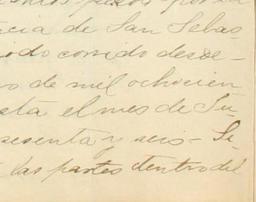 cia de San Sebas
odo corrido desde-
o de mil ochocien
sta el mes de Ju-
esenta y seis - Si
las partes dentro del